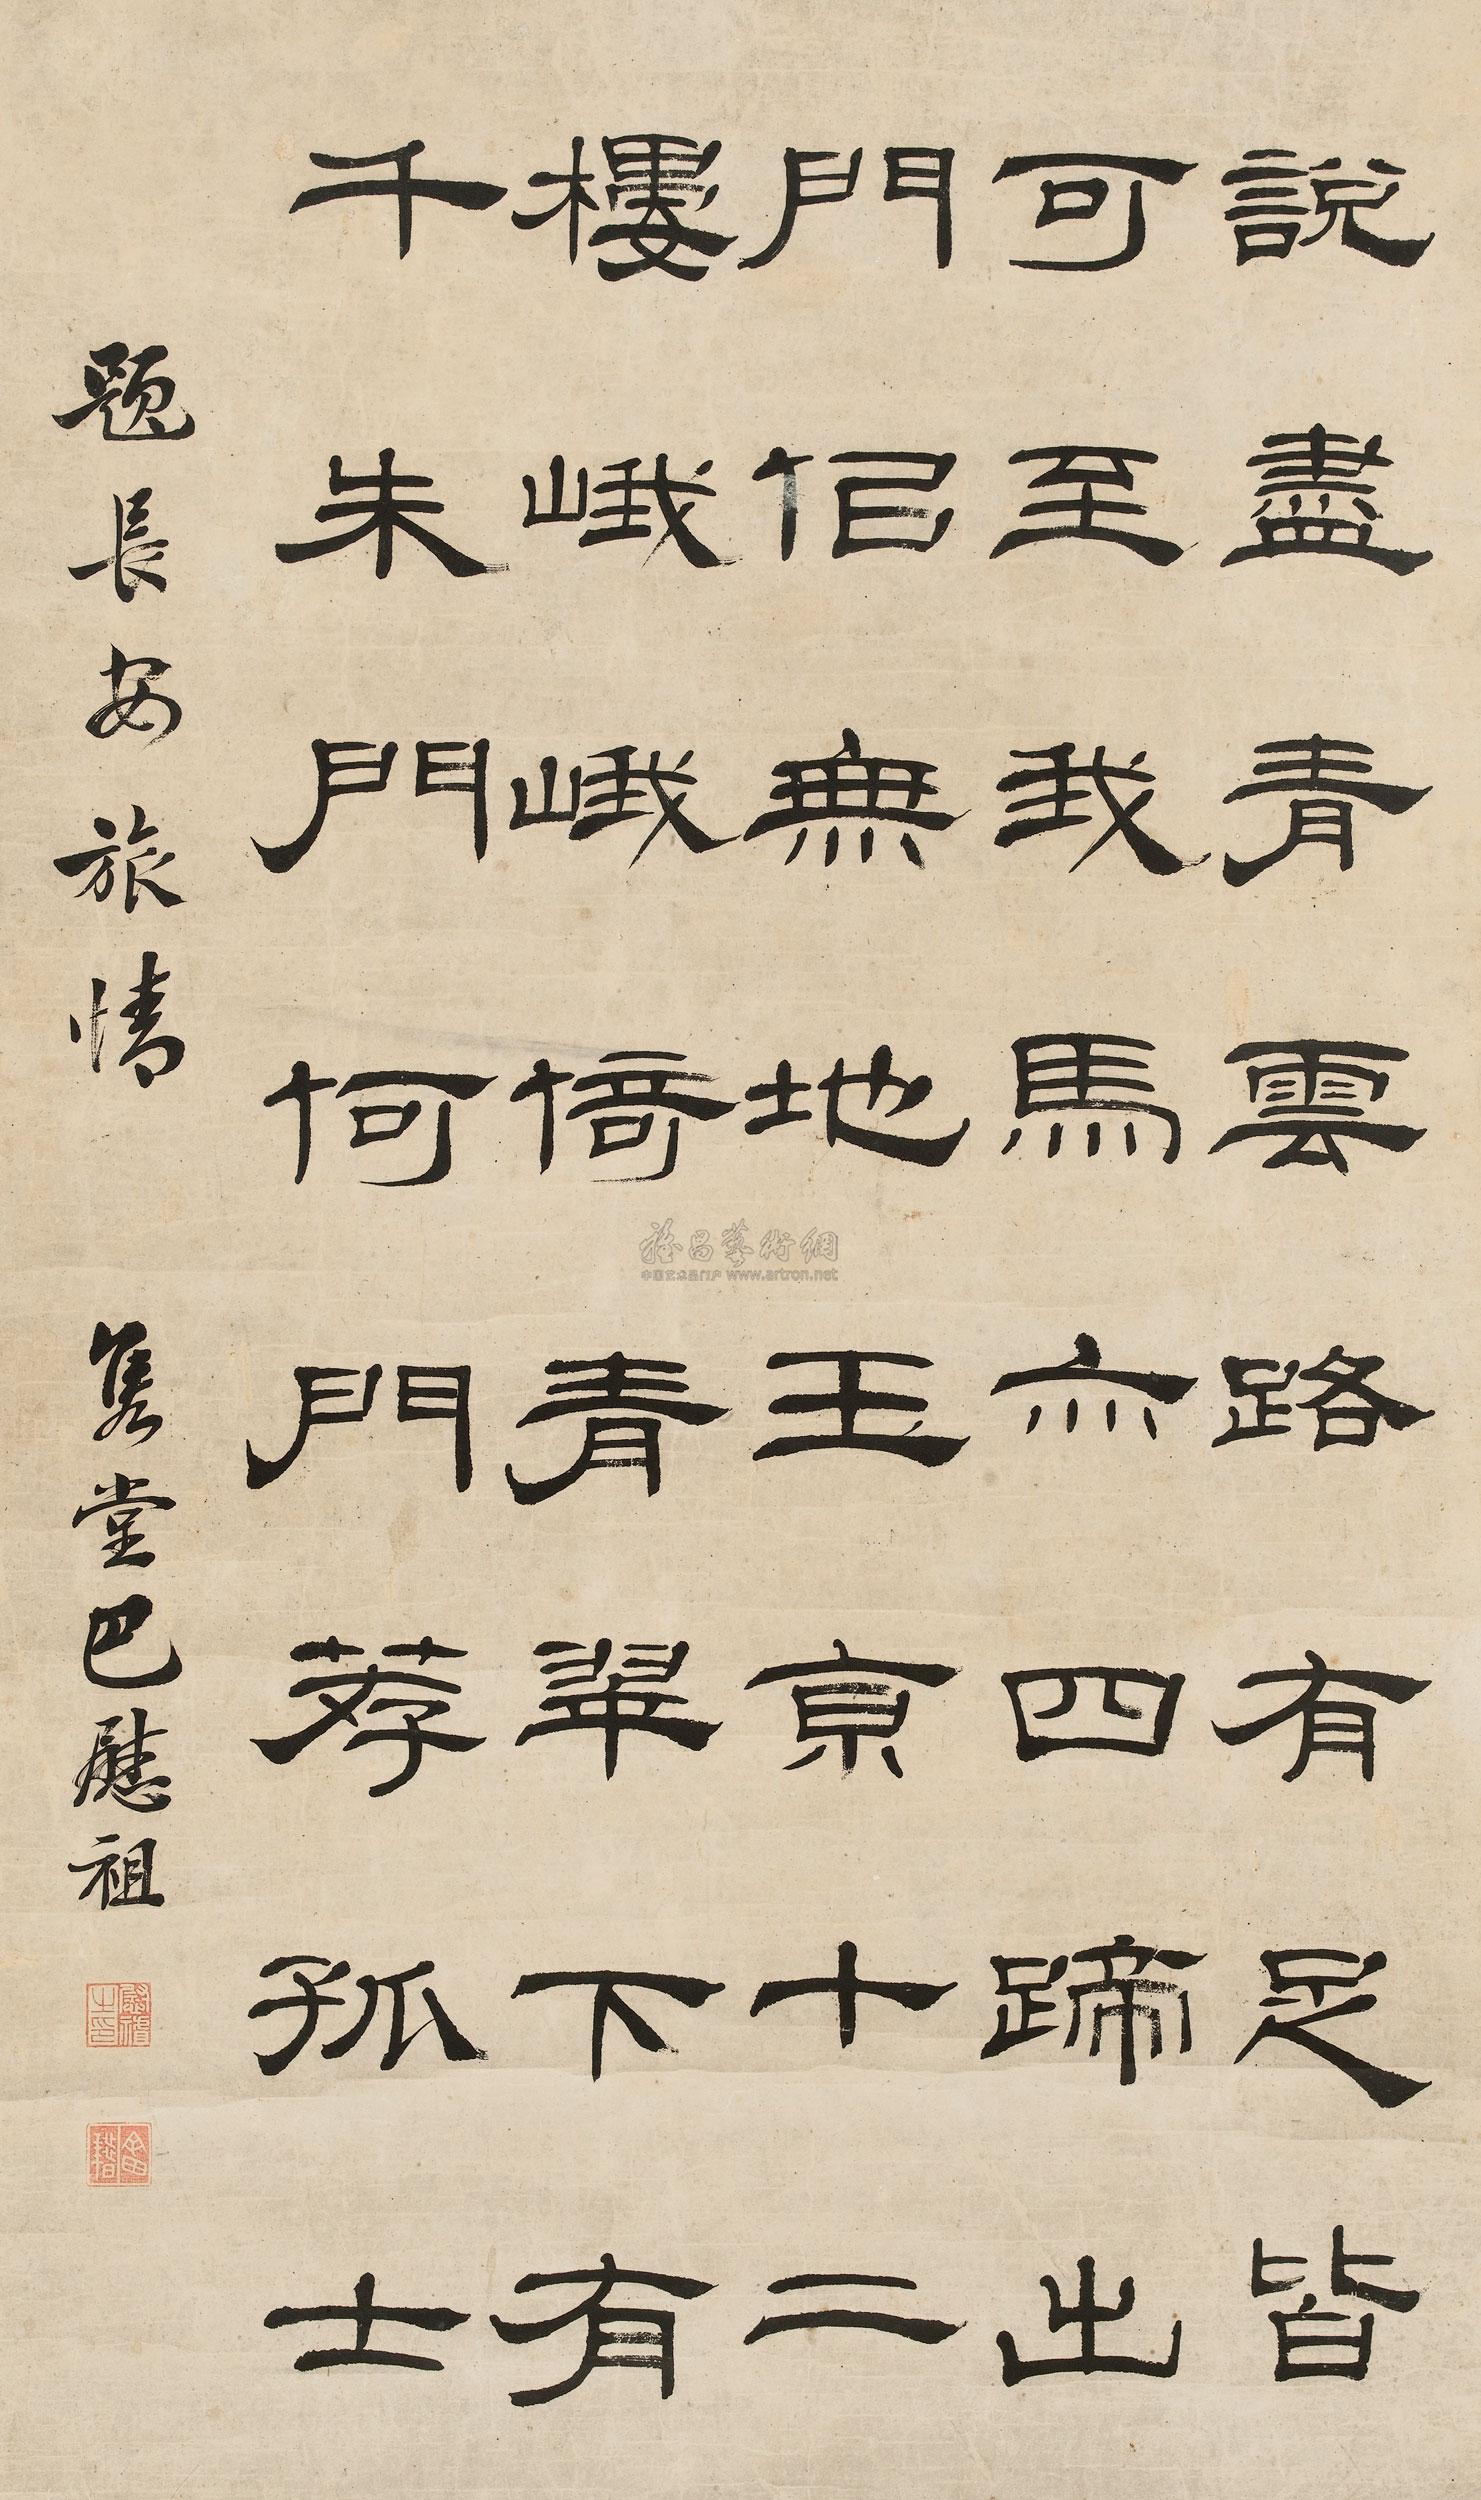 說盡青雲路有足皆
可至我馬亦四蹄出
門似無地玉京十二
樓峨峨倚青翠下有
千朱門何門荐孤士
題長安旅情 雋堂巴慰祖
雅昌藝術網
中国艺术品门户 www.artron.net